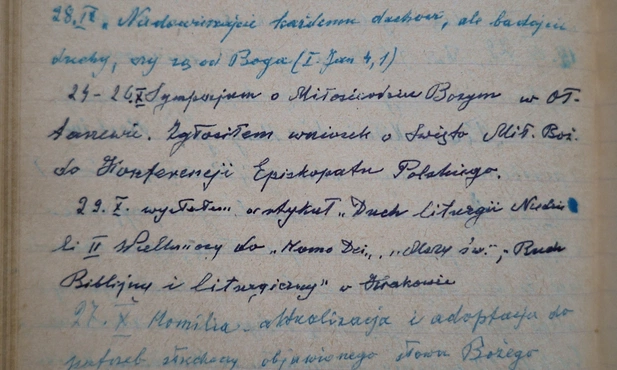 28.IX. „Nie dowierzajcie każdemu duchowi, ale badajcie
duchy, czy są od Boga (I. Jan 4,1)
24-26.X Sympozjum o Miłosierdziu Bożym w Oł-
tarzewie. Zgłosiłem wniosek o Święto Mił. Boż.
do Konferencji Episkopatu Polskiego.
29.X. wysłałem artykuł „Duch liturgii Niedzie
li II Wielkanocy do „Homo Dei„, „Mszy św.”, Ruch
Biblijny i liturgiczny” w Krakowie
27.X Homilia - aktualizacja i adoptacja do
potrzeb słuchaczy objawionego słowa Bożego